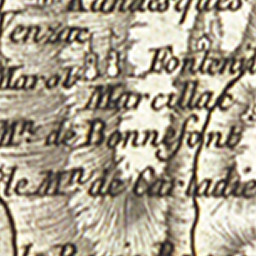 Randesques
Venzac
Marob
Fontenil
Marcillac
Mn. de Bonnefont
le Mn. de Carladie